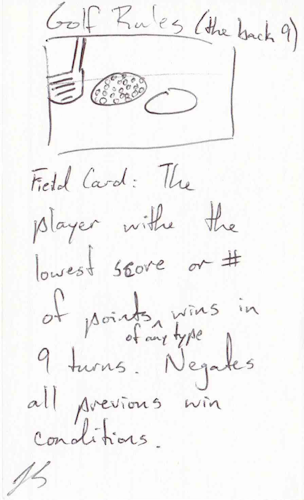 Golf Rules (the back 9)
Field Card: The
player withe the
lowest score or #
of points ^ wins in
of any type
9 turns. Negates
all previous win
conditions.